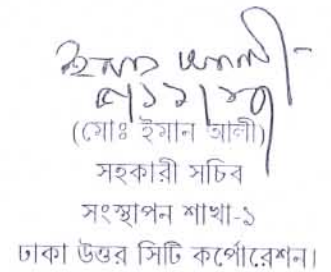 ইমান আলী
(মোঃ ইমান আলী)
সহকারী সচিব
সংস্থাপন শাখা-১
ঢাকা উত্তর সিটি কর্পোরেশন।